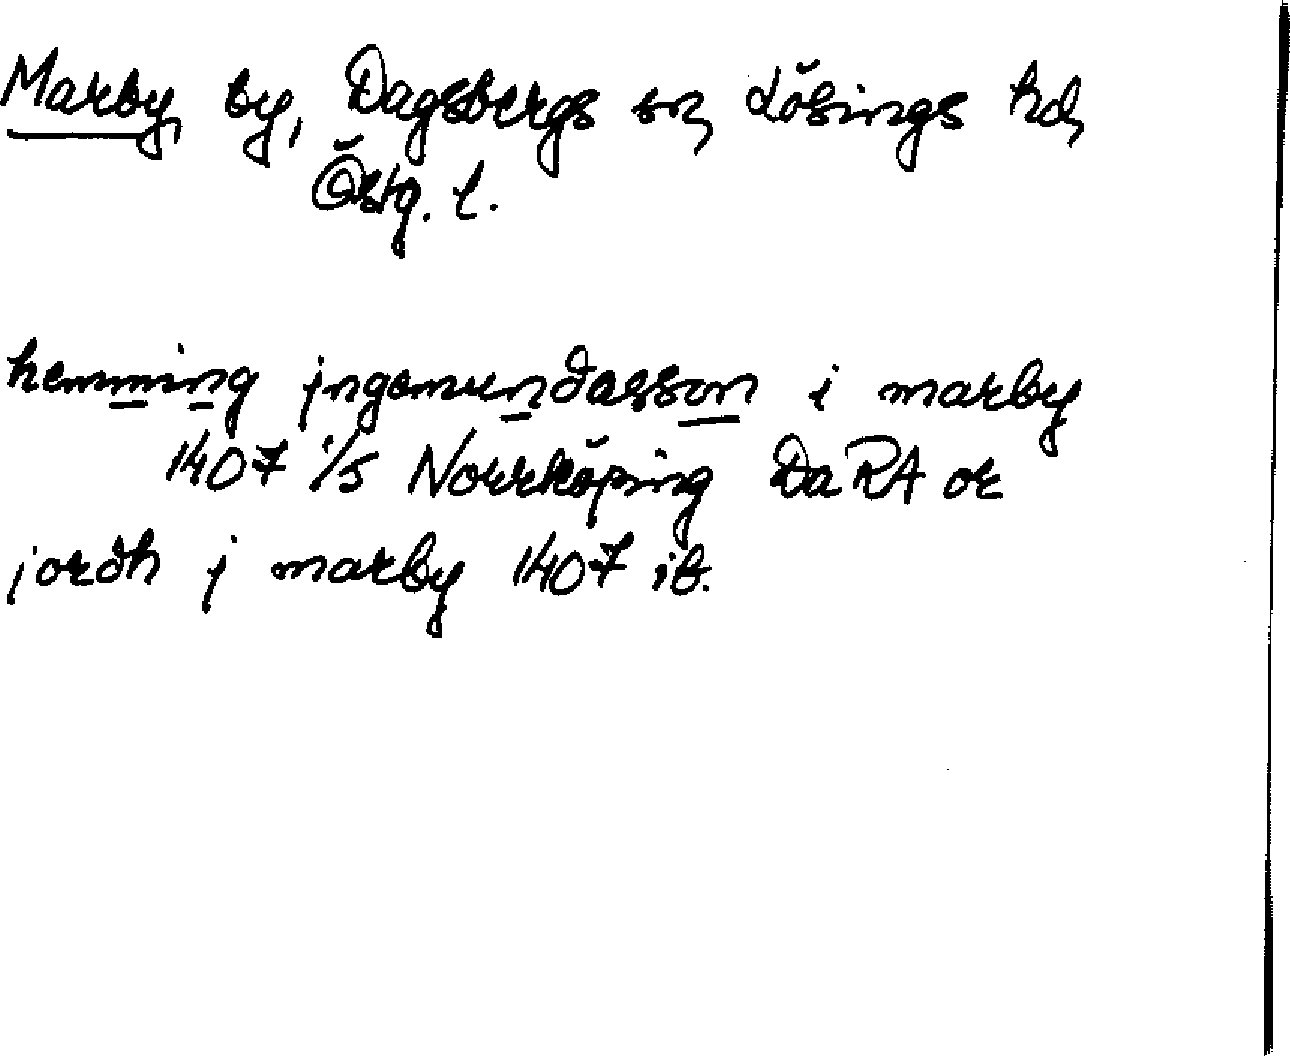 Marby, by, Dagsbergs sn, Lösings hd,
Östg. l.
hemming jngemundasson i marby
1407 1/5 Norrköping DaRA or
jordh j marby 1407 ib.